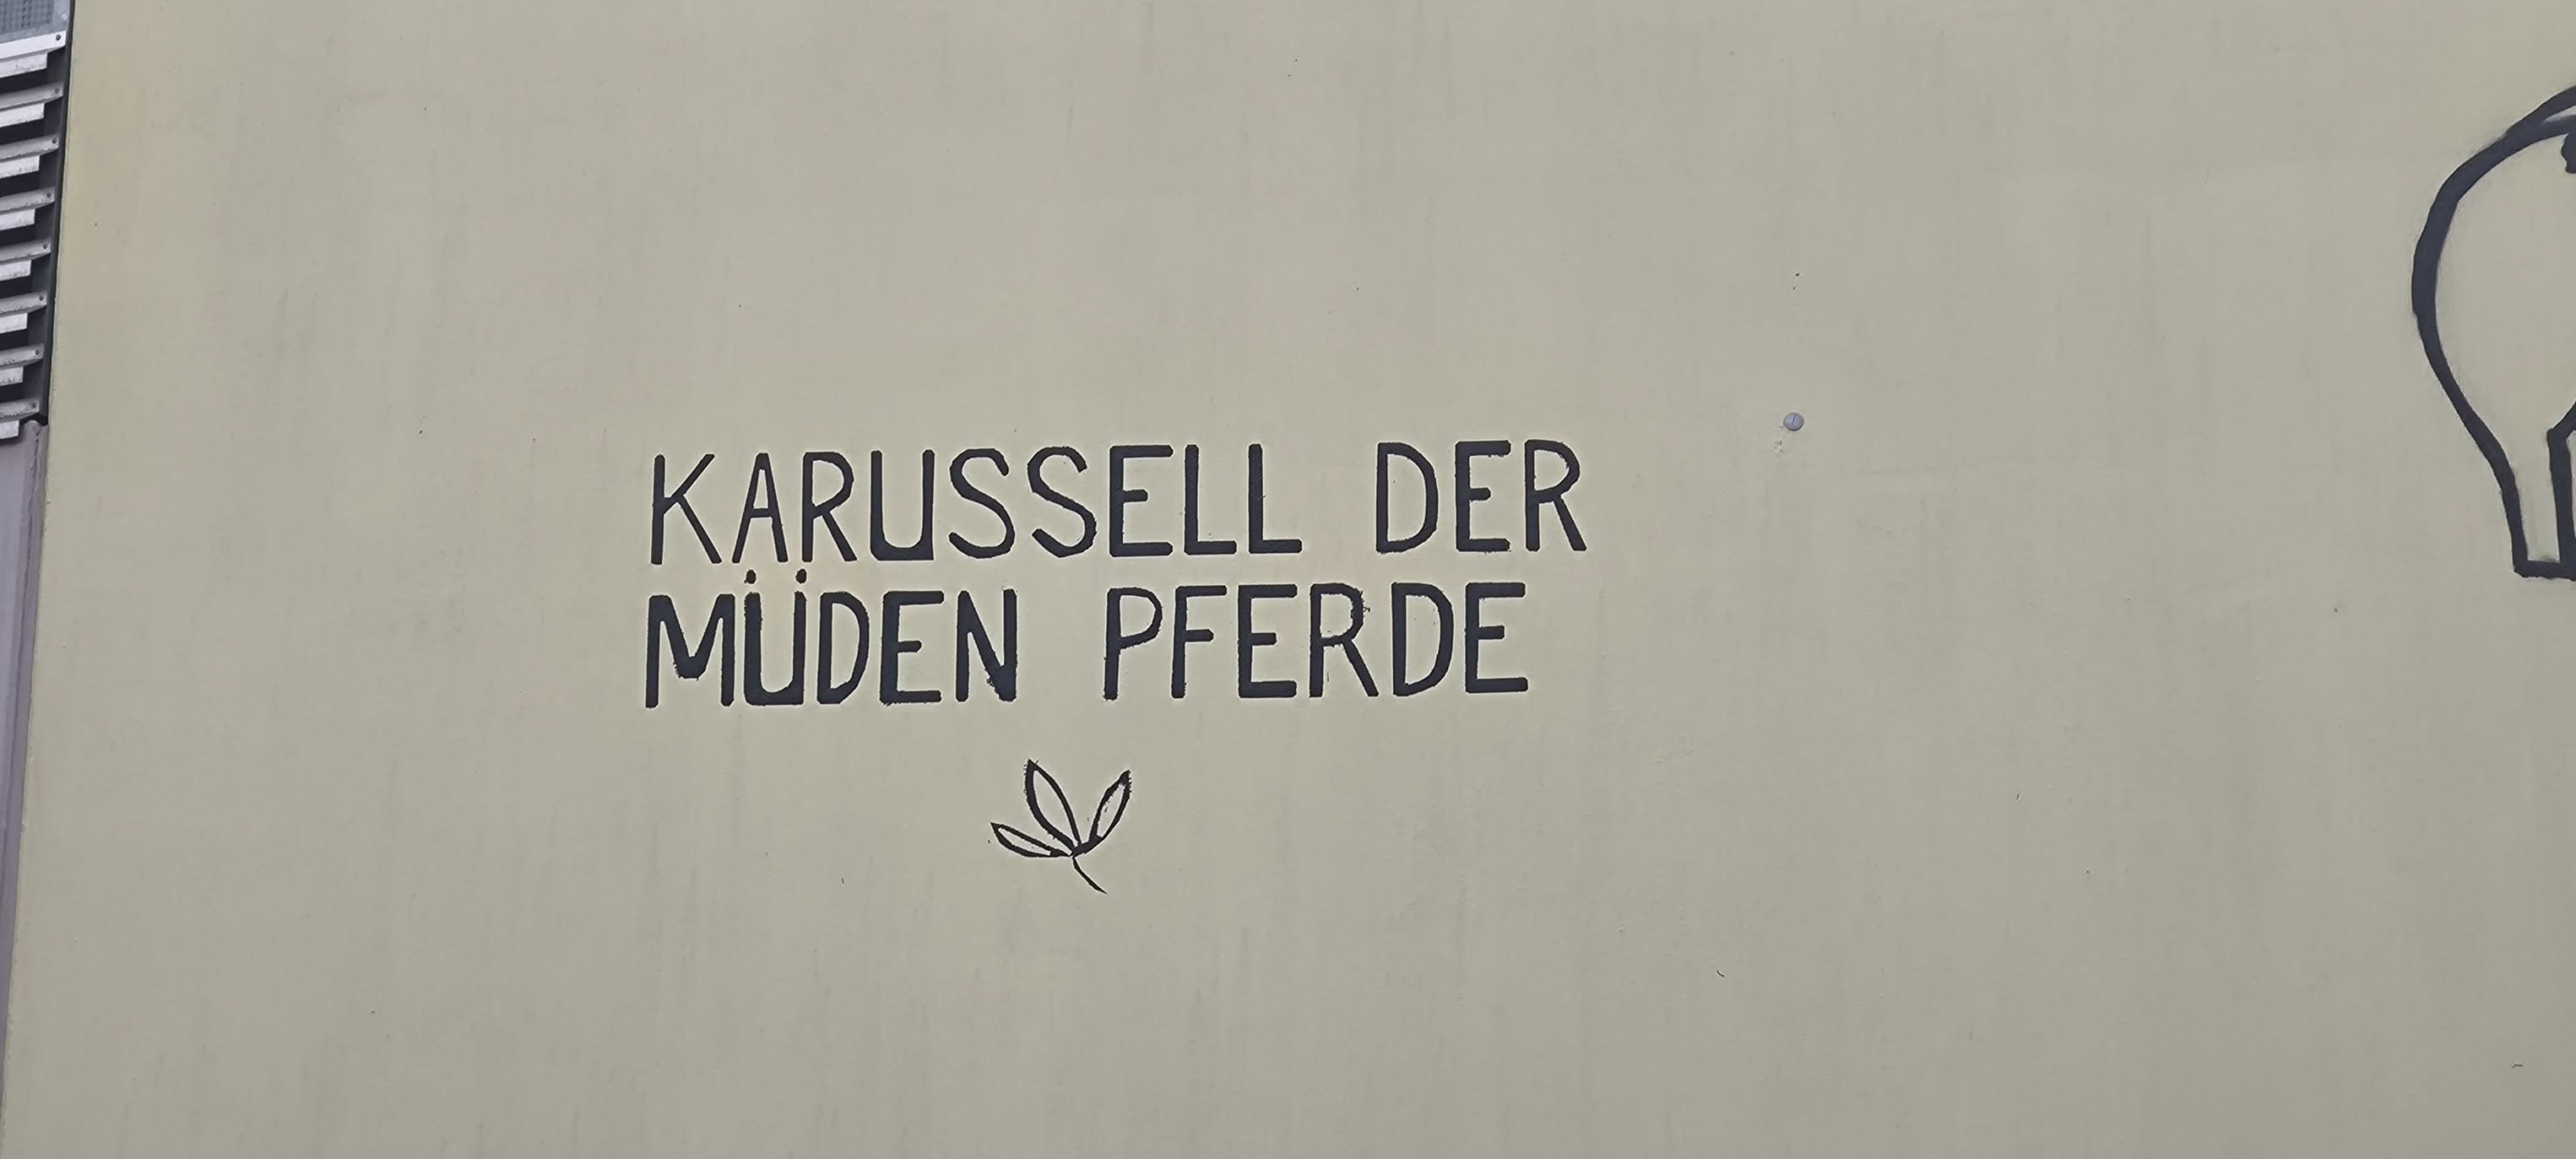 KARUSSELL DER
MÜDEN PFERDE